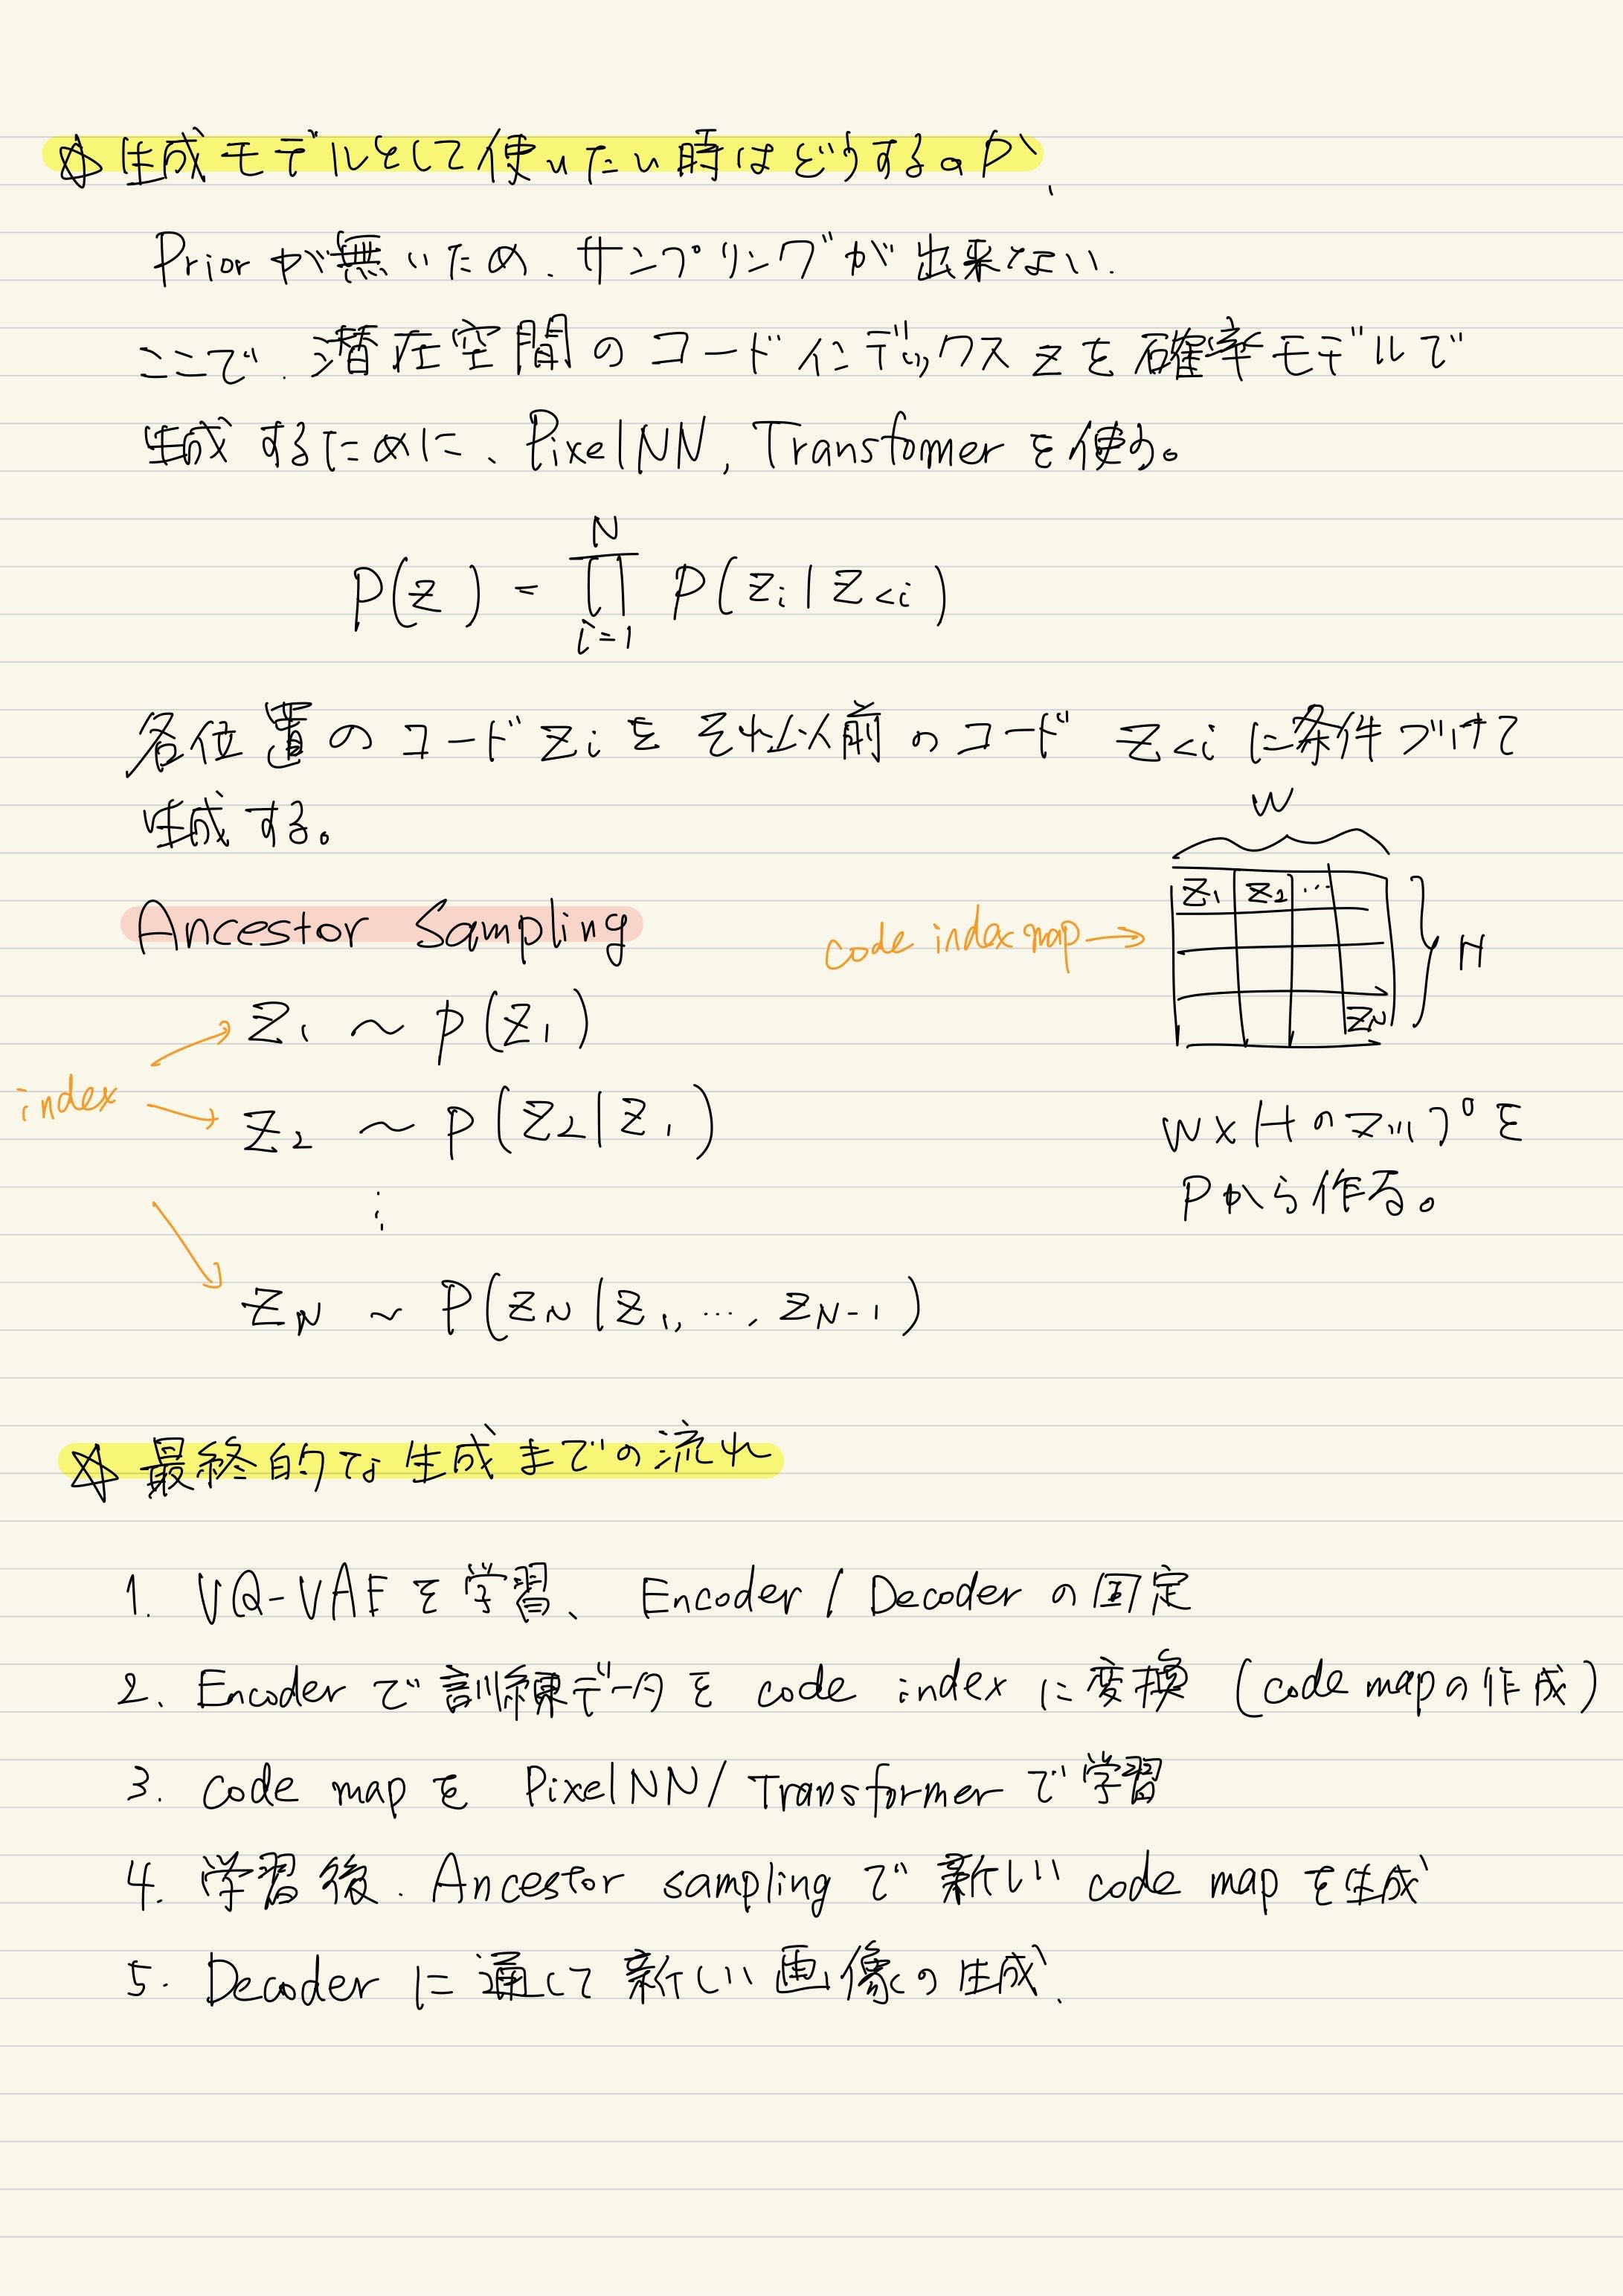 ☆ 生成モデルとして使いたい時はどうするのか、
Priorが無いため、サンプリングが出来ない.
ここで、潜在空間のコードインデックス zを確率モデルで
生成するために、PixelNN, Transfomerを使う。
P(z) = ∏_{i=1}^{N} P(z_i | z_{<i})
各位置のコード z_i を それ以前のコード z_{<i} に条件づけて
生成する。
W
z_1 z_2 …
z_N
H
code index map →
W×Hのマップを
Pから作る。
Ancestor Sampling
index
z_1 ~ p(z_1)
z_2 ~ p(z_2 | z_1)
⋮
z_N ~ P(z_N | z_1, …, z_{N-1})
☆ 最終的な生成までの流れ
1. VQ-VAEを学習、 Encoder / Decoder の固定
2. Encoder で訓練データを code index に変換 (code mapの作成)
3. code map を PixelNN/Transformerで学習
4. 学習後. Ancestor sampling で 新しい code map を生成
5. Decoder に通して新しい画像の生成.